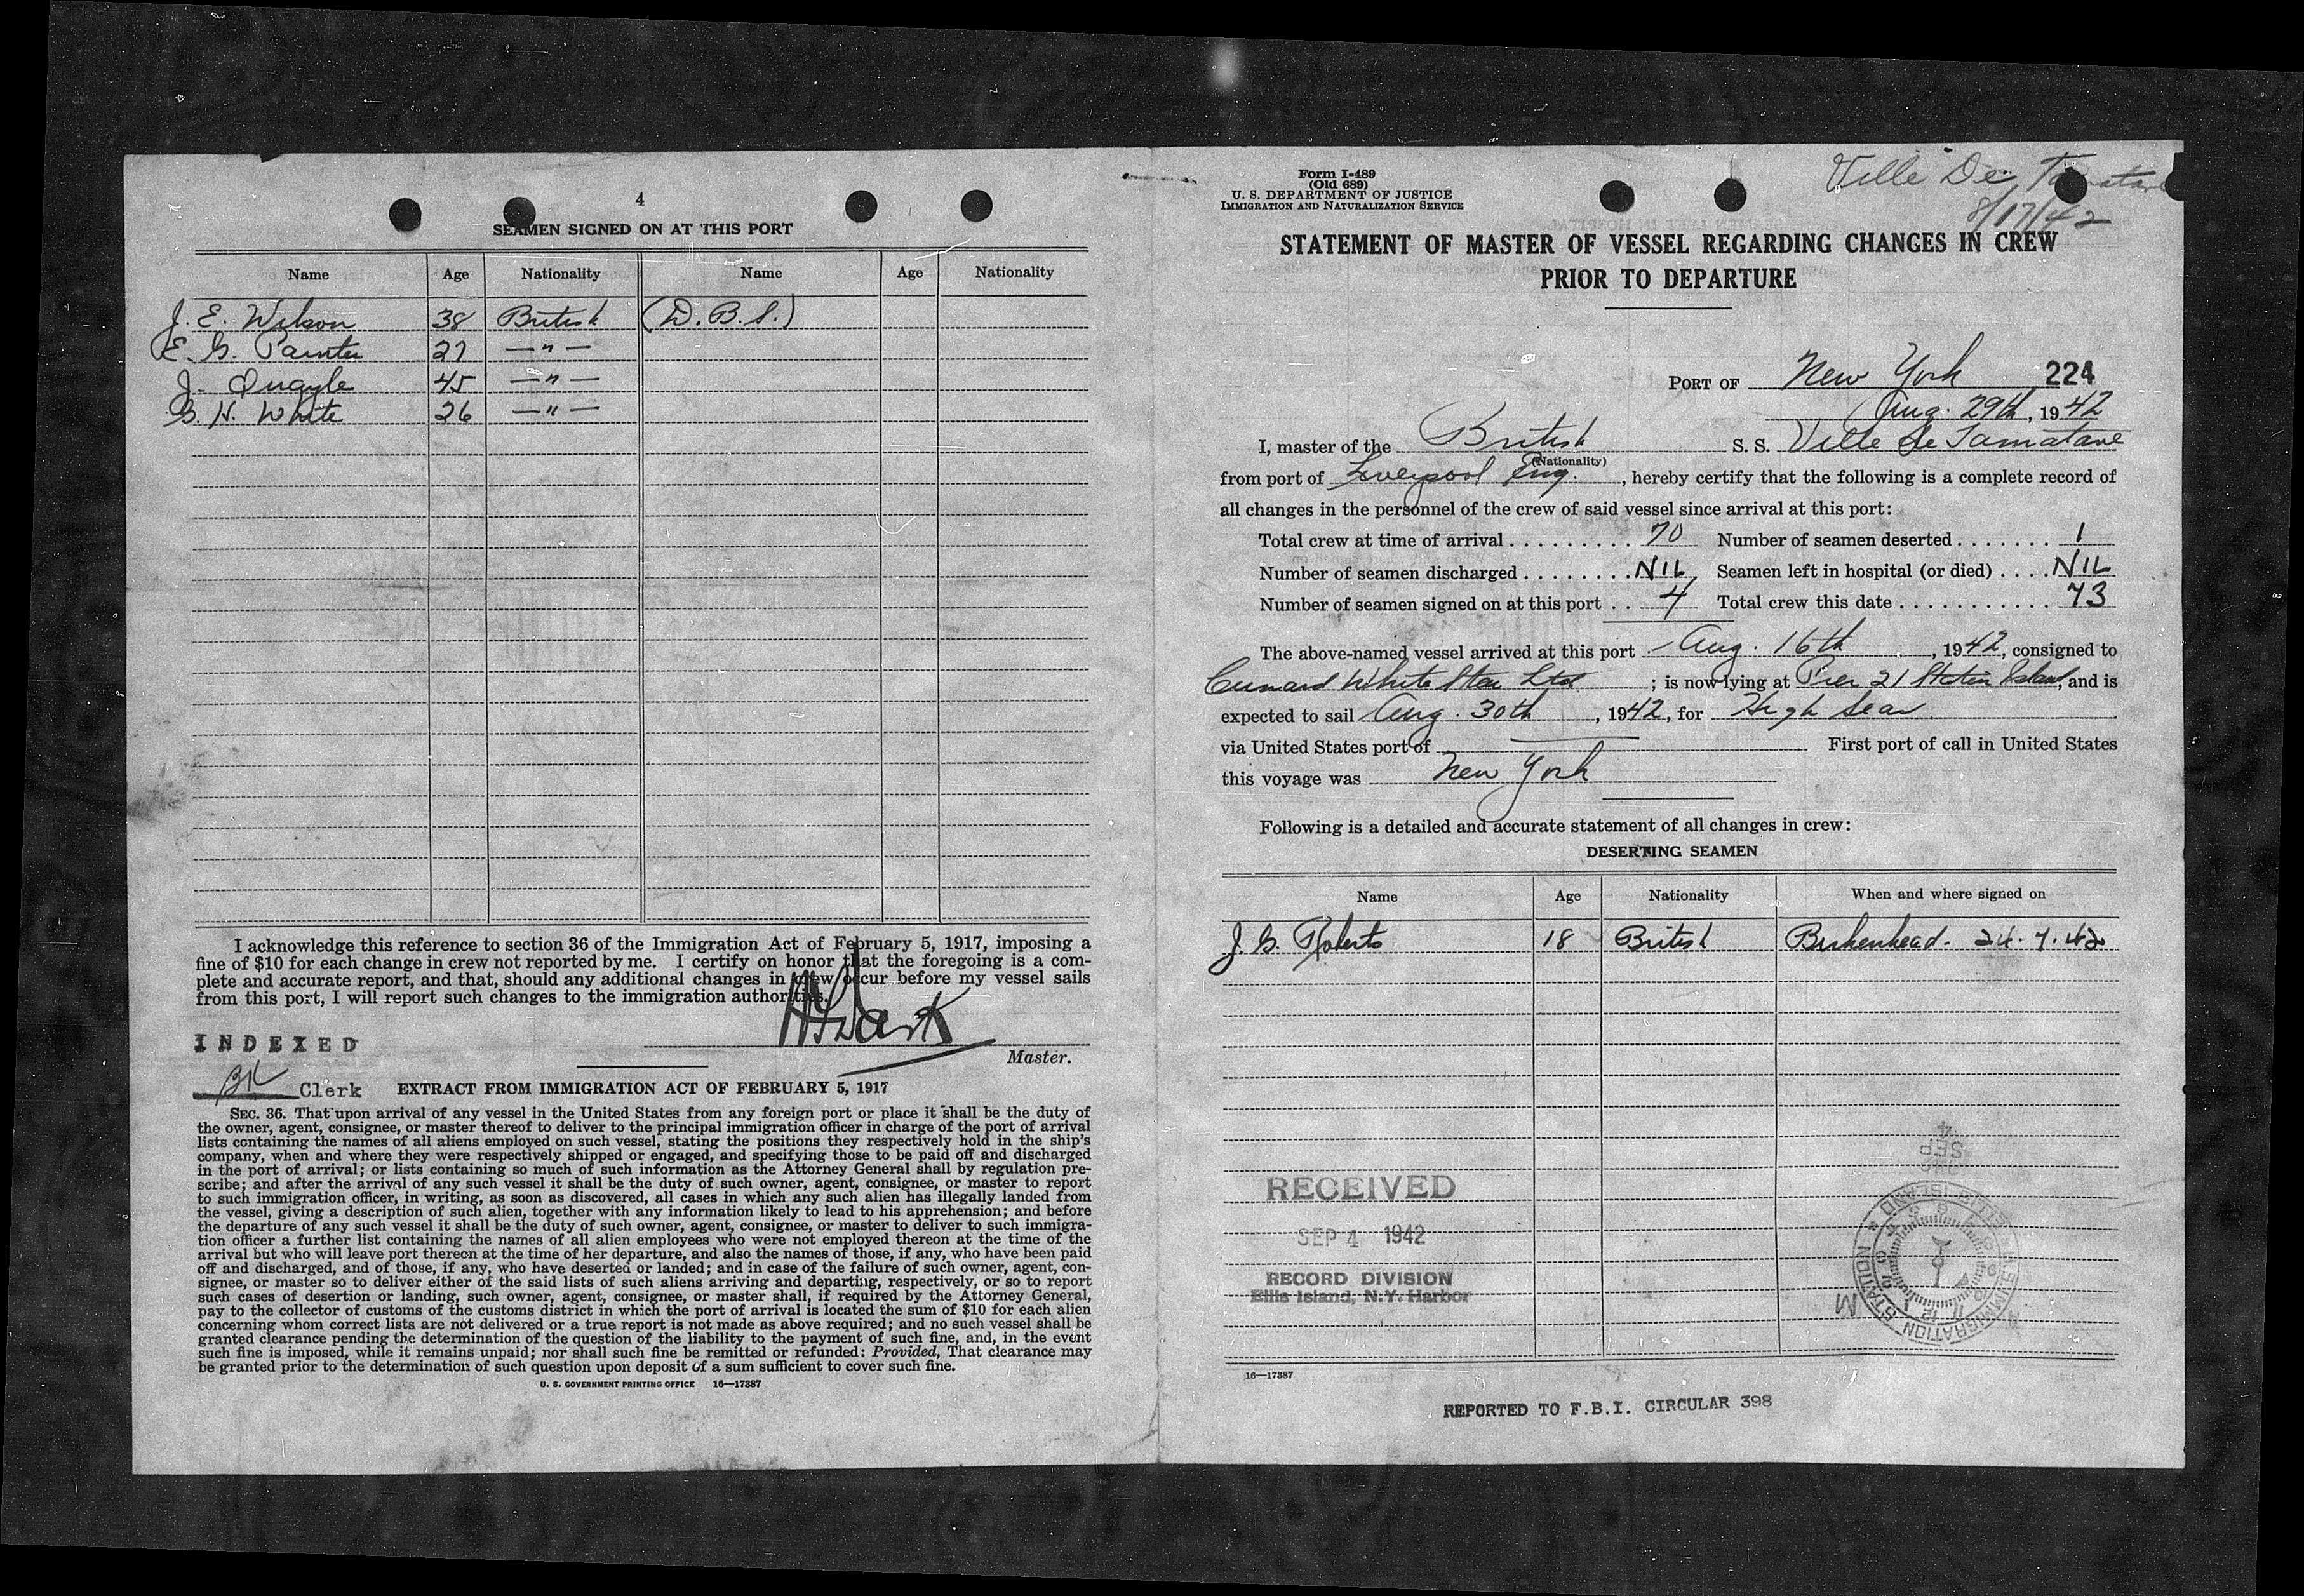 4
SEAMEN SIGNED ON AT THIS PORT
Name Age Nationality Name Age Nationality
J. E. Wilson 38 British (D.B.S.)
E. G. Painter 27 — " —
J. Quayle 45 — " —
G. H. White 26 — " —
I acknowledge this reference to section 36 of the Immigration Act of February 5, 1917, imposing a
fine of $10 for each change in crew not reported by me. I certify on honor that the foregoing is a com-
plete and accurate report, and that, should any additional changes in crew occur before my vessel sails
from this port, I will report such changes to the immigration authorities.
INDEXED
Master.
BK Clerk EXTRACT FROM IMMIGRATION ACT OF FEBRUARY 5, 1917
SEC. 36. That upon arrival of any vessel in the United States from any foreign port or place it shall be the duty of
the owner, agent, consignee, or master thereof to deliver to the principal immigration officer in charge of the port of arrival
lists containing the names of all aliens employed on such vessel, stating the positions they respectively hold in the ship's
company, when and where they were respectively shipped or engaged, and specifying those to be paid off and discharged
in the port of arrival; or lists containing so much of such information as the Attorney General shall by regulation pre-
scribe; and after the arrival of any such vessel it shall be the duty of such owner, agent, consignee, or master to report
to such immigration officer, in writing, as soon as discovered, all cases in which any such alien has illegally landed from
the vessel, giving a description of such alien, together with any information likely to lead to his apprehension; and before
the departure of any such vessel it shall be the duty of such owner, agent, consignee, or master to deliver to such immigra-
tion officer a further list containing the names of all alien employees who were not employed thereon at the time of the
arrival but who will leave port thereon at the time of her departure, and also the names of those, if any, who have been paid
off and discharged, and of those, if any, who have deserted or landed; and in case of the failure of such owner, agent, con-
signee, or master so to deliver either of the said lists of such aliens arriving and departing, respectively, or so to report
such cases of desertion or landing, such owner, agent, consignee, or master shall, if required by the Attorney General,
pay to the collector of customs of the customs district in which the port of arrival is located the sum of $10 for each alien
concerning whom correct lists are not delivered or a true report is not made as above required; and no such vessel shall be
granted clearance pending the determination of the question of the liability to the payment of such fine, and, in the event
such fine is imposed, while it remains unpaid; nor shall such fine be remitted or refunded: Provided, That clearance may
be granted prior to the determination of such question upon deposit of a sum sufficient to cover such fine.
U. S. GOVERNMENT PRINTING OFFICE 16—17387
Form I-489
(Old 689)
U. S. DEPARTMENT OF JUSTICE
IMMIGRATION AND NATURALIZATION SERVICE
Ville De Tamatave
8/17/42
STATEMENT OF MASTER OF VESSEL REGARDING CHANGES IN CREW
PRIOR TO DEPARTURE
PORT OF New York 224
Aug. 29th, 1942
I, master of the British S. S. Ville de Tamatave
(Nationality)
from port of Liverpool Eng., hereby certify that the following is a complete record of
all changes in the personnel of the crew of said vessel since arrival at this port:
Total crew at time of arrival 70 Number of seamen deserted 1
Number of seamen discharged NIL Seamen left in hospital (or died) NIL
Number of seamen signed on at this port 4 Total crew this date 73
The above-named vessel arrived at this port Aug. 16th, 1942, consigned to
Cunard White Star Ltd; is now lying at Pier 21 Staten Island, and is
expected to sail Aug. 30th, 1942, for High Seas
via United States port of — First port of call in United States
this voyage was New York
Following is a detailed and accurate statement of all changes in crew:
DESERTING SEAMEN
Name Age Nationality When and where signed on
J. G. Roberts 18 British Birkenhead. 24.7.42
RECEIVED
SEP 4 1942
RECORD DIVISION
Ellis Island, N.Y. Harbor
SEP 4
ELLIS ISLAND
IMMIGRATION STATION
16—17387
REPORTED TO F.B.I. CIRCULAR 398